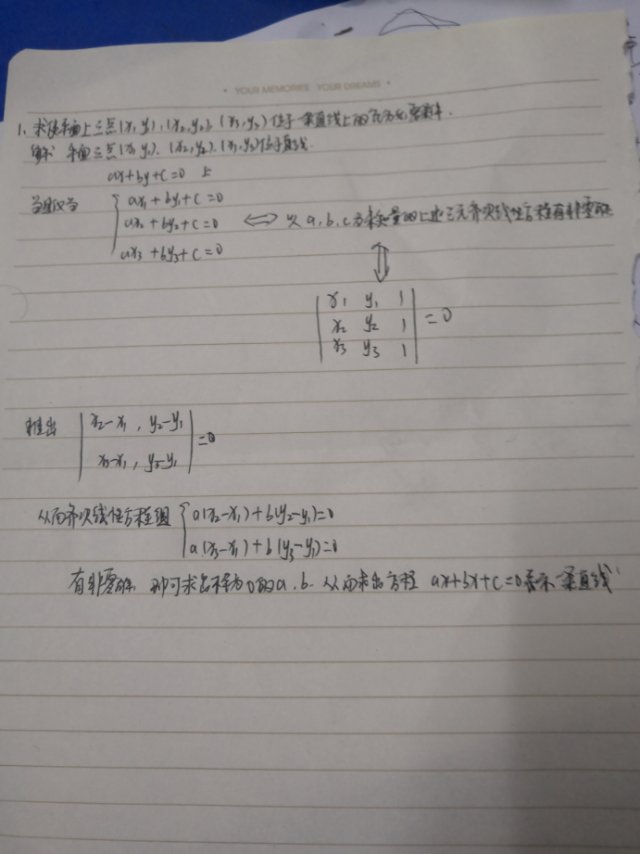 • YOUR MEMORIES YOUR DREAMS •
1. 求使平面上三点(x₁, y₁), (x₂, y₂), (x₃, y₃)位于一条直线上的充分必要条件.
解: 平面三点(x₁, y₁), (x₂, y₂), (x₃, y₃)位于直线
ax+by+c=0 上
当且仅当 { ax₁+by₁+c=0
ax₂+by₂+c=0 ⟺ 以a, b, c为未知量的上述三元齐次线性方程有非零解
ax₃+by₃+c=0
⇕
| x₁ y₁ 1 |
| x₂ y₂ 1 | =0
| x₃ y₃ 1 |
推出 | x₂-x₁, y₂-y₁ |
| x₃-x₁, y₃-y₁ | =0
从而齐次线性方程组 { a(x₂-x₁)+b(y₂-y₁)=0
a(x₃-x₁)+b(y₃-y₁)=0
有非零解 即可求出不全为0的a, b. 从而求出方程 ax+bx+c=0表示一条直线